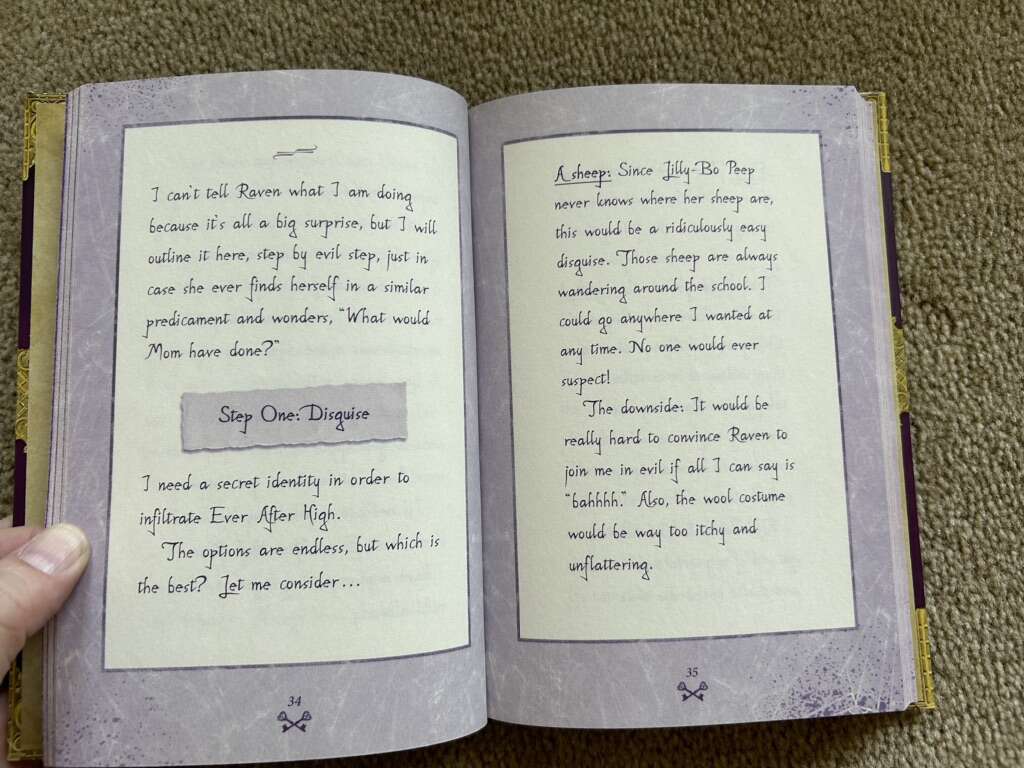 I can't tell Raven what I am doing
because it's all a big surprise, but I will
outline it here, step by evil step, just in
case she ever finds herself in a similar
predicament and wonders, "What would
Mom have done?"
Step One: Disguise
I need a secret identity in order to
infiltrate Ever After High.
The options are endless, but which is
the best? Let me consider...
34
A sheep: Since Jilly-Bo Peep
never knows where her sheep are,
this would be a ridiculously easy
disguise. Those sheep are always
wandering around the school. I
could go anywhere I wanted at
any time. No one would ever
suspect!
The downside: It would be
really hard to convince Raven to
join me in evil if all I can say is
"bahhhh." Also, the wool costume
would be way too itchy and
unflattering.
35